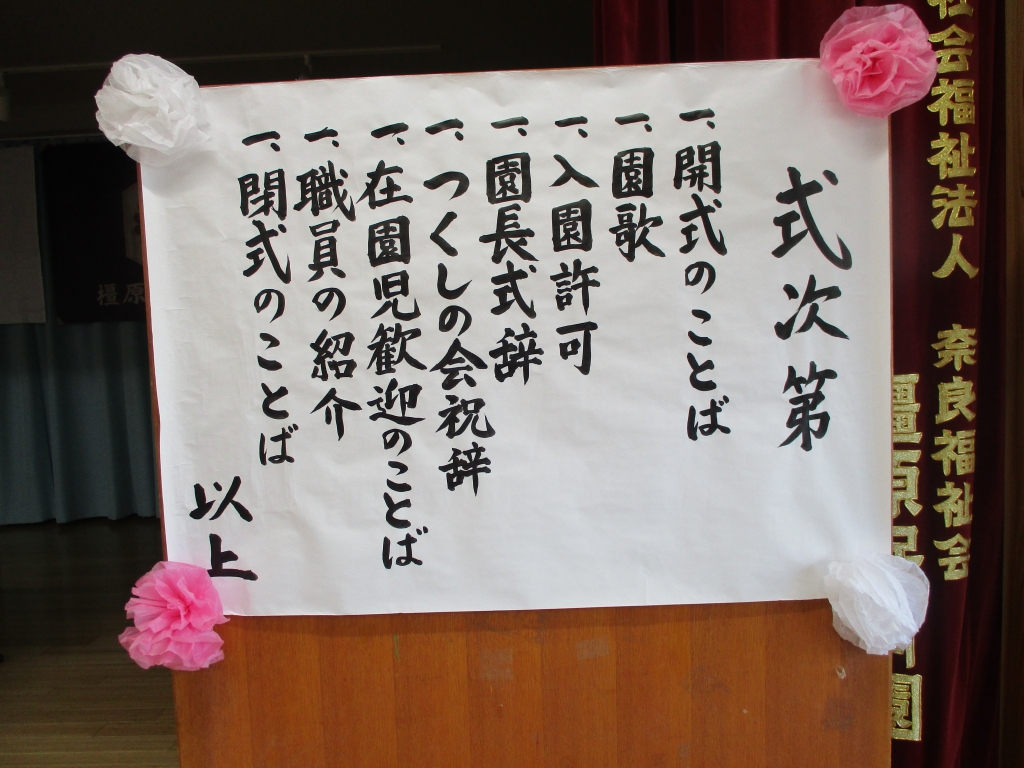 式次第
一、開式のことば
一、園歌
一、入園許可
一、園長式辞
一、つくしの会祝辞
一、在園児歓迎のことば
一、職員の紹介
一、閉式のことば
以上
社会福祉法人 奈良福祉会
橿原